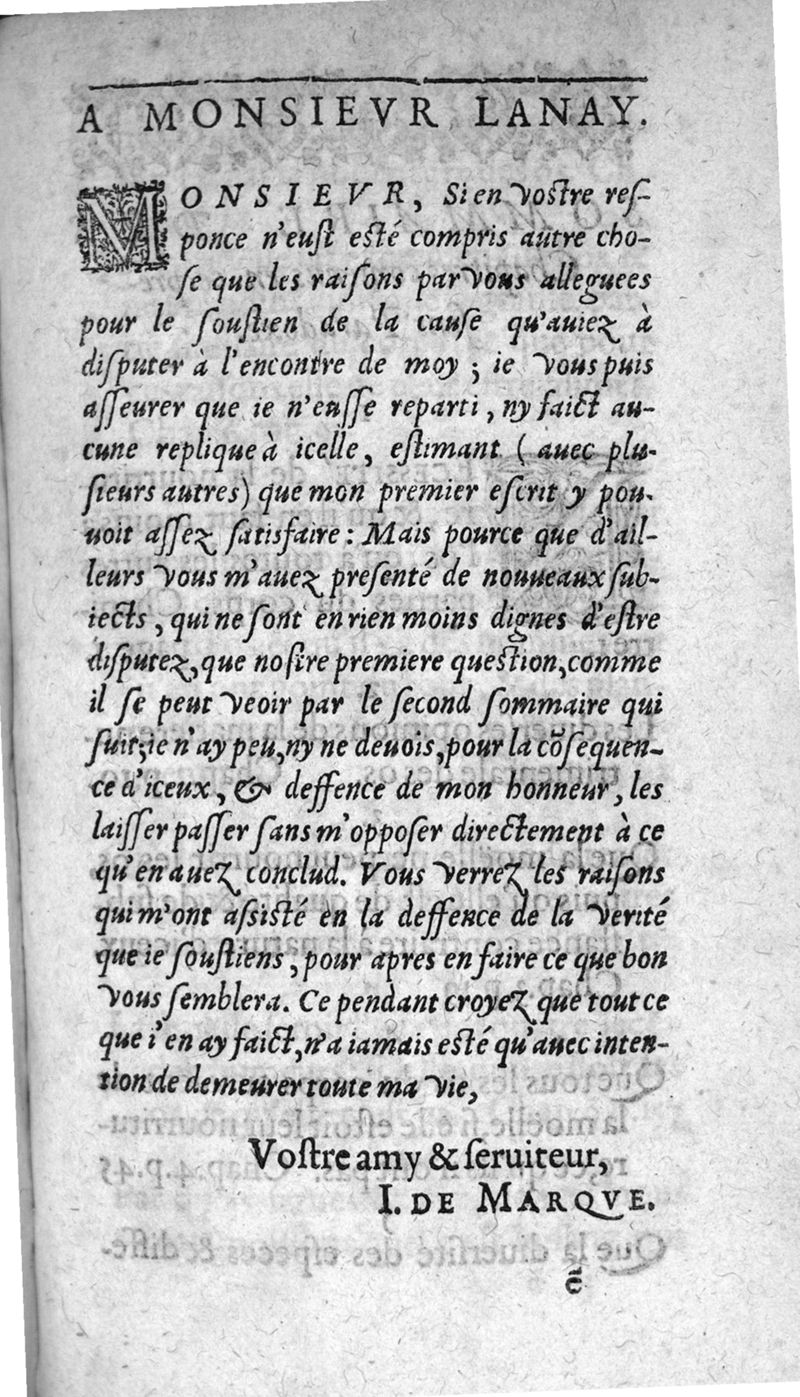 A MONSIEVR LANAY.
MONSIEVR, Si en vostre reſ-
ponce n'eust esté compris autre cho-
ſe que les raiſons par vous alleguees
pour le ſoustien de la cauſe qu'auiez à
diſputer à l'encontre de moy ; ie vous puis
aſſeurer que ie n'euſſe reparti, ny faict au-
cune replique à icelle, estimant (auec plu-
ſieurs autres) que mon premier eſcrit y pou-
uoit aſſez ſatisfaire : Mais pource que d'ail-
leurs vous m'auez preſenté de nouueaux ſub-
iects, qui ne ſont en rien moins dignes d'estre
diſputez, que nostre premiere question, comme
il ſe peut veoir par le ſecond ſommaire qui
ſuit; ie n'ay peu, ny ne deuois, pour la cõſequen-
ce d'iceux, & deffence de mon honneur, les
laiſſer paſſer ſans m'oppoſer directement à ce
qu'en auez conclud. Vous verrez les raiſons
qui m'ont aſsisté en la deffence de la verité
que ie ſoustiens, pour apres en faire ce que bon
vous ſemblera. Ce pendant croyez que tout ce
que i'en ay faict, n'a iamais esté qu'auec inten-
tion de demeurer toute ma vie,
Voſtre amy & ſeruiteur,
I. DE MARQVE.
ẽ